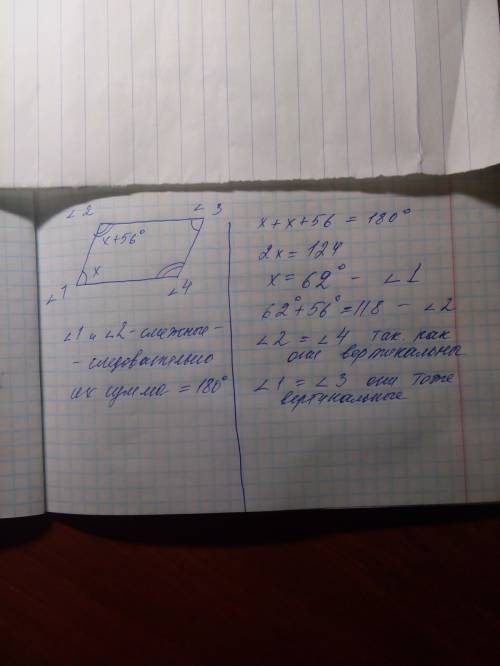 ∠2 ∠3
x+56°
x
∠1 ∠4
∠1 и ∠2 - смежные -
- следовательно
их сумма = 180°
x + x + 56 = 180°
2x = 124
x = 62° - ∠1
62° + 56° = 118 - ∠2
∠2 = ∠4 так как
они вертикальны
∠1 = ∠3 они тоже
вертикальные